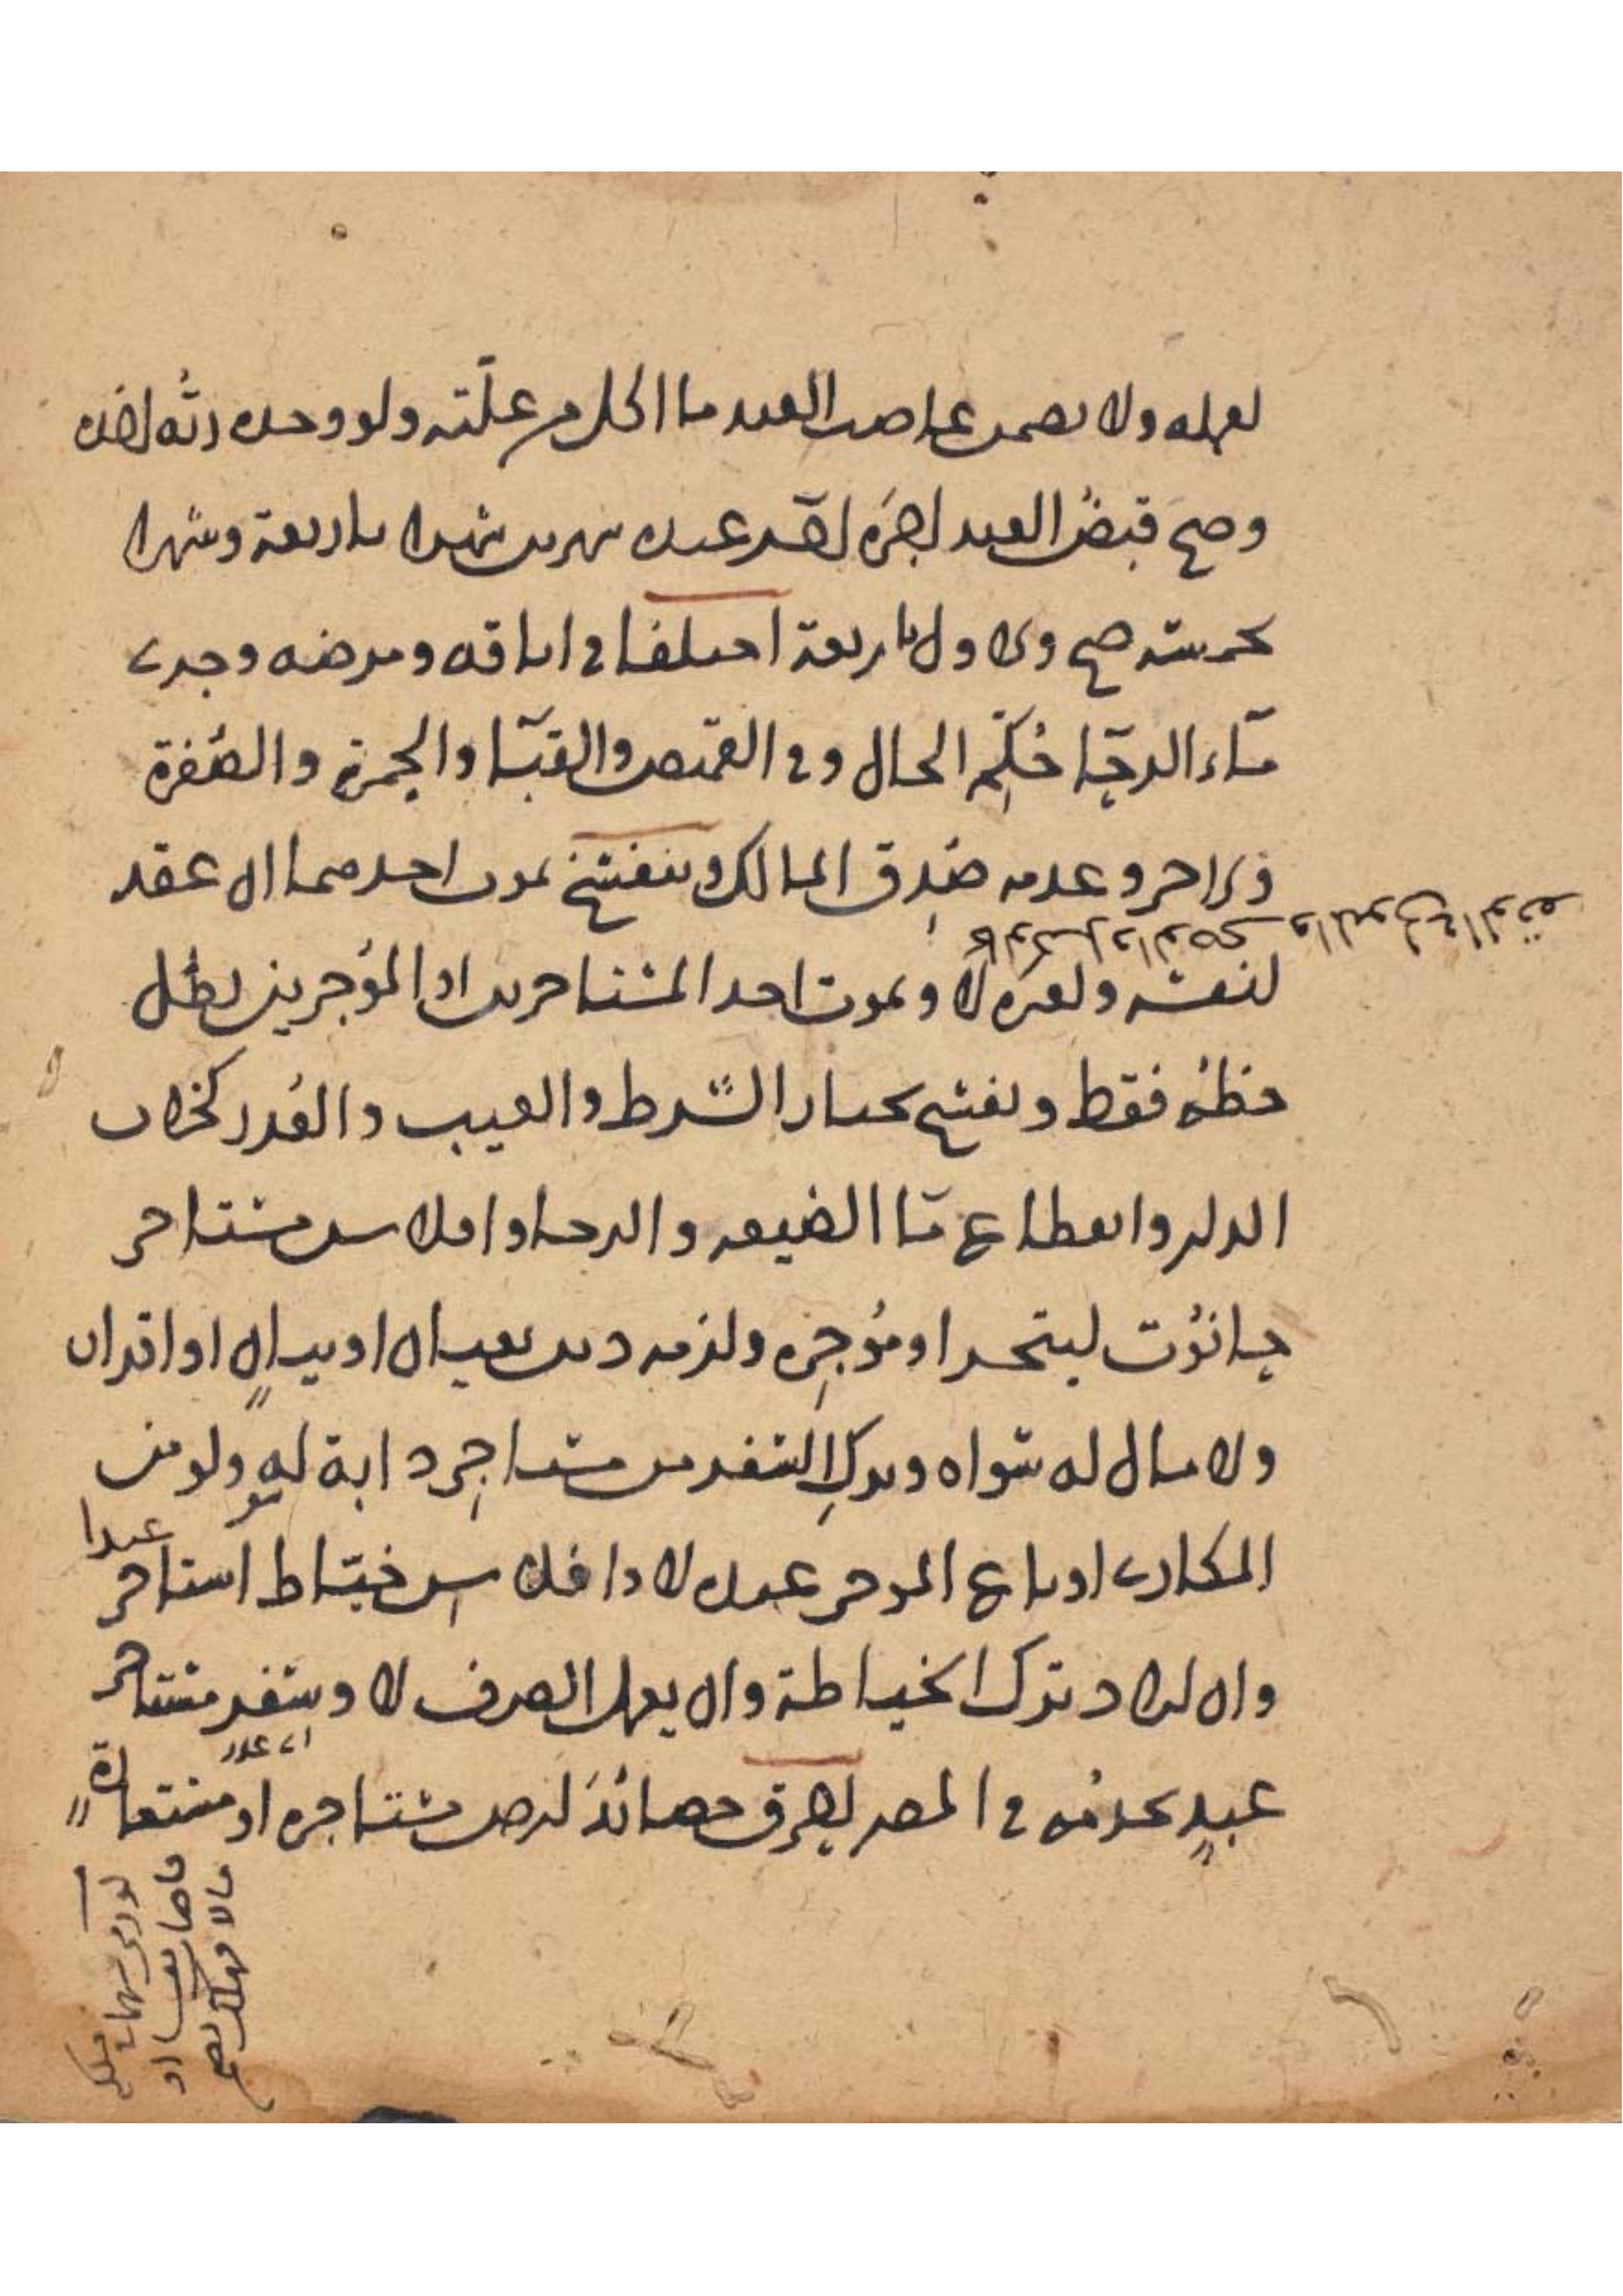 لعمله ولا يضمن غاصب العبد ما اكل من غلته ولو وجده ربه اخذه
وصح قبض العبد اجره لو اجر عبده شهرين شهرا باربعة وشهرا
بخمسة صح والاول باربعة اختلفا في اباقه ومرضه وجرى
ماء الرحا حكم الحال وفي القميص والقبا والحمرة والصفرة
والاجر وعدمه صدق المالك وينفسخ بموت احدهما ان عقد
لنفسه ولغيره لا وبموت احد المستاجرين او المؤجرين بطل
كالوكيل والوصي والمتولي في الوقف
حظه فقط وتفسخ بخيار الشرط والعيب والعذر كخراب
الدار وانقطاع ما الضيعة والرحا وافلاس مستاجر
حانوت ليتجر او مؤجره ولزمه دين بعيان او ببيان او اقرار
ولا مال له سواه وترك السفر من مستاجر دابة له ولو من
المكاري او باع المؤجر عبده لا وافلاس خياط استاجر عبدا
وان اراد ترك الخياطة وان يعمل الصرف لا وسفر مستاجر
عبد يخدمه في المصر احرق حصائد ارض مستاجره او مستعارة
اي عذر